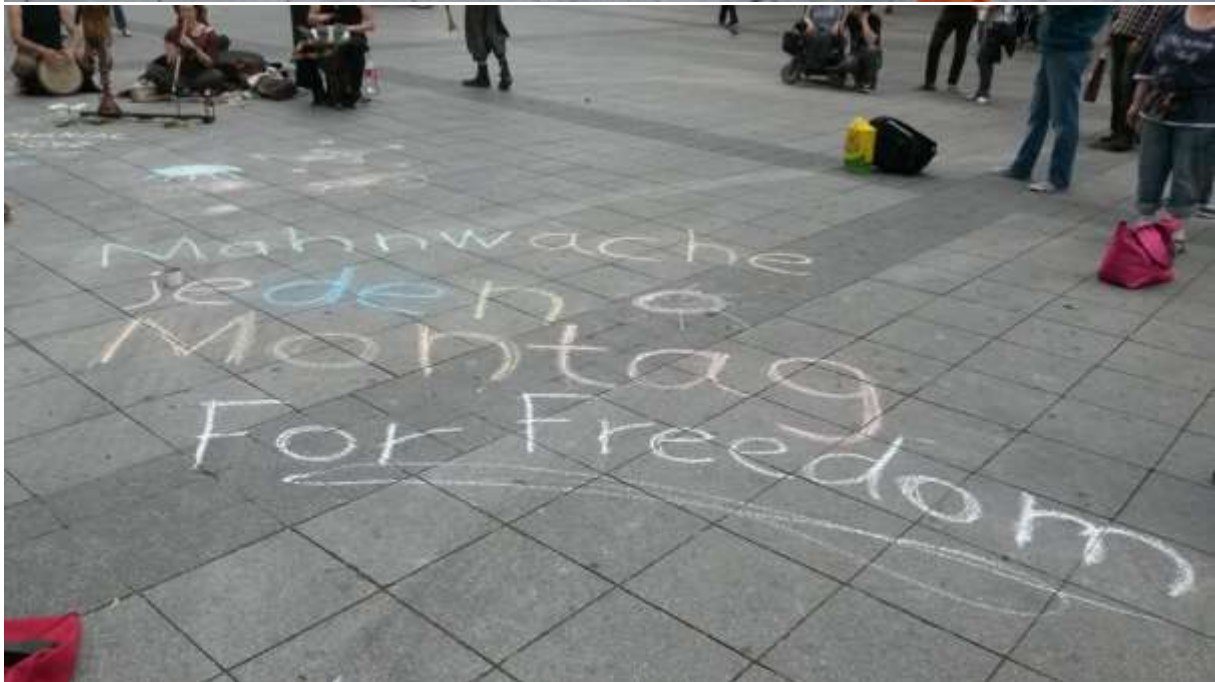 Mahnwache
jeden
Montag
For Freedom